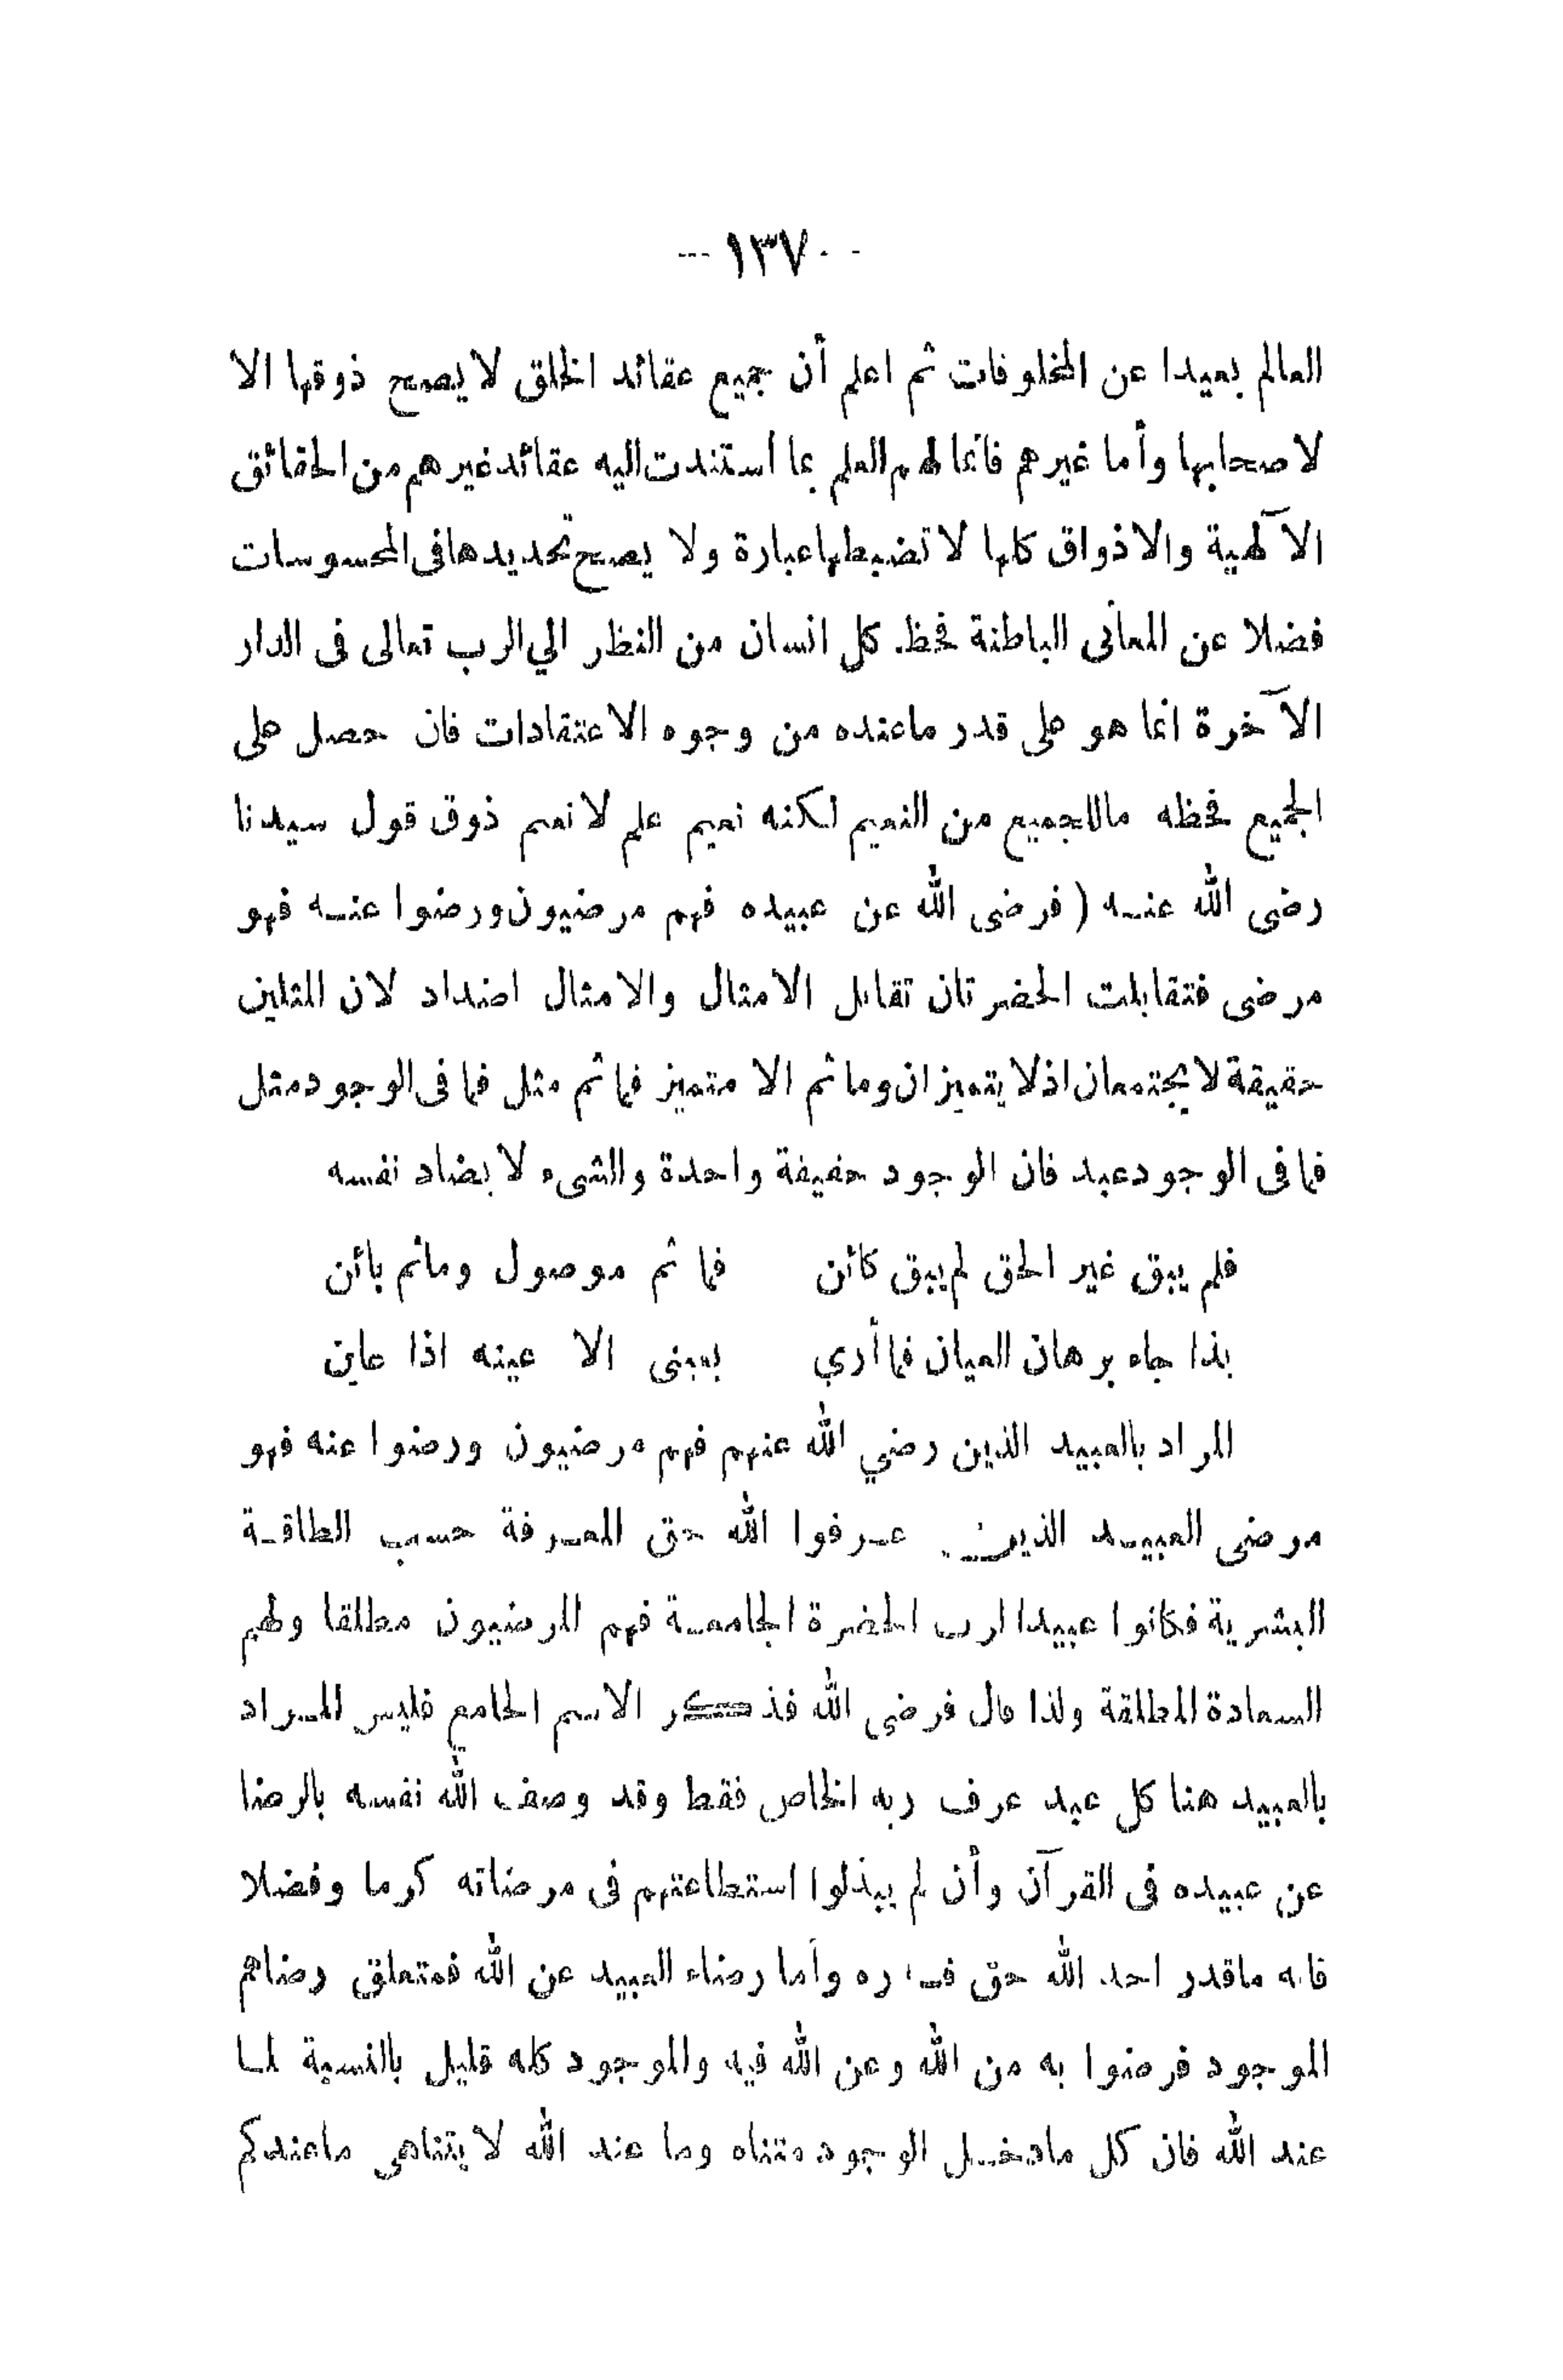 --- ١٣٧ ---
العالم بعيدا عن المخلوقات ثم اعلم أن جميع عقائد الخلق لا يصح ذوقها الا
لاصحابها وأما غيرهم فانما لهم العلم بما استندت اليه عقائد غيرهم من الحقائق
الآلهية والاذواق كلها لا تضبطها عبارة ولا يصح تحديدها فى المحسوسات
فضلا عن المعانى الباطنة فحظ كل انسان من النظر الي الرب تعالى فى الدار
الآخرة انما هو على قدر ماعنده من وجوه الاعتقادات فان حصل على
الجميع فحظه ماللجميع من النعيم لكنه نعيم علم لا نعيم ذوق قول سيدنا
رضى الله عنه ( فرضى الله عن عبيده فهم مرضيون ورضوا عنه فهو
مرضى فتقابلت الحضرتان تقابل الامثال والامثال اضداد لان المثلين
حقيقة لا يجتمعان اذ لا يتميزان وما ثم الا متميز فما ثم مثل فما فى الوجود مثل
فما فى الوجود عبد فان الوجود حقيقة واحدة والشىء لا يضاد نفسه
فلم يبق غير الحق لم يبق كائن فما ثم موصول وماثم بائن
بذا جاء برهان العيان فما أري بعينى الا عينه اذا عاين
المراد بالعبيد الذين رضي الله عنهم فهم مرضيون ورضوا عنه فهو
مرضى العبيد الذين عرفوا الله حق المعرفة حسب الطاقة
البشرية فكانوا عبيدا لرب الحضرة الجامعة فهم المرضيون مطلقا ولهم
السعادة المطلقة ولذا قال فرضى الله فذكر الاسم الجامع فليس المراد
بالعبيد هنا كل عبد عرف ربه الخاص فقط وقد وصف الله نفسه بالرضا
عن عبيده فى القرآن وأن لم يبذلوا استطاعتهم فى مرضاته كرما وفضلا
فانه ماقدر احد الله حق قدره وأما رضاء العبيد عن الله فمتعلق رضاهم
الموجود فرضوا به من الله وعن الله فيه والموجود كله قليل بالنسبة لما
عند الله فان كل مادخل الوجود متناه وما عند الله لا يتناهى ماعندكم